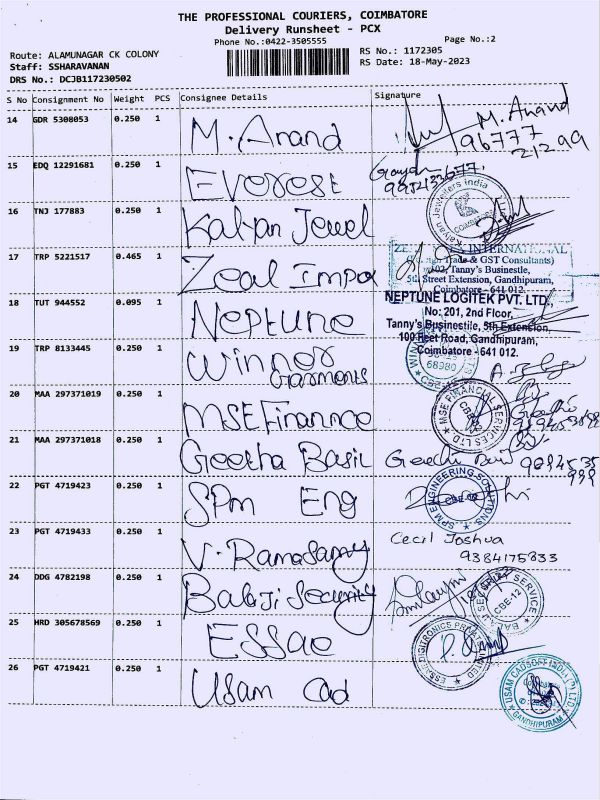 THE PROFESSIONAL COURIERS, COIMBATORE
Delivery Runsheet - PCX
Phone No.:0422-3505555 Page No.:2
Route: ALAMUNAGAR CK COLONY RS No.: 1172305
Staff: SSHARAVANAN RS Date: 18-May-2023
DRS No.: DCJB117230502
S No Consignment No Weight PCS Consignee Details Signature
14 GDR 5308053 0.250 1 M.Anand M.Anand
96777
21299
15 EDQ 12291681 0.250 1 Everest
16 TNJ 177883 0.250 1 Kalyan Jewel Kalyan Jewellers India
17 TRP 5221517 0.465 1 Zeal Impex INTERNATIONAL
Trade & GST Consultants)
102, Tanny's Businestle,
5th Street Extension, Gandhipuram,
Coimbatore - 641 012.
18 TUT 944552 0.095 1 Neptune NEPTUNE LOGITEK PVT. LTD.,
No: 201, 2nd Floor,
Tanny's Businestile, 5th Extension,
100 Feet Road, Gandhipuram,
Coimbatore - 641 012.
19 TRP 8133445 0.250 1 Winner
Garments 68980
20 MAA 297371019 0.250 1 MSE Finannce MSE FINANCIAL SERVICES LTD
21 MAA 297371018 0.250 1 Geetha Basil
22 PGT 4719423 0.250 1 SPm Eng SPM ENGINEERING SOLUTIONS
23 PGT 4719433 0.250 1 V.Ramasamy Cecil Joshua
9384175833
24 DDG 4782198 0.250 1 Balaji Security BALAJI SECURITY SERVICE
CBE-12
25 HRD 305678569 0.250 1 ESSae DIGITRONICS PRIVATE
26 PGT 4719421 0.250 1 Usam Cad USAM CADSOFT INDIA (P) LTD
GANDHIPURAM